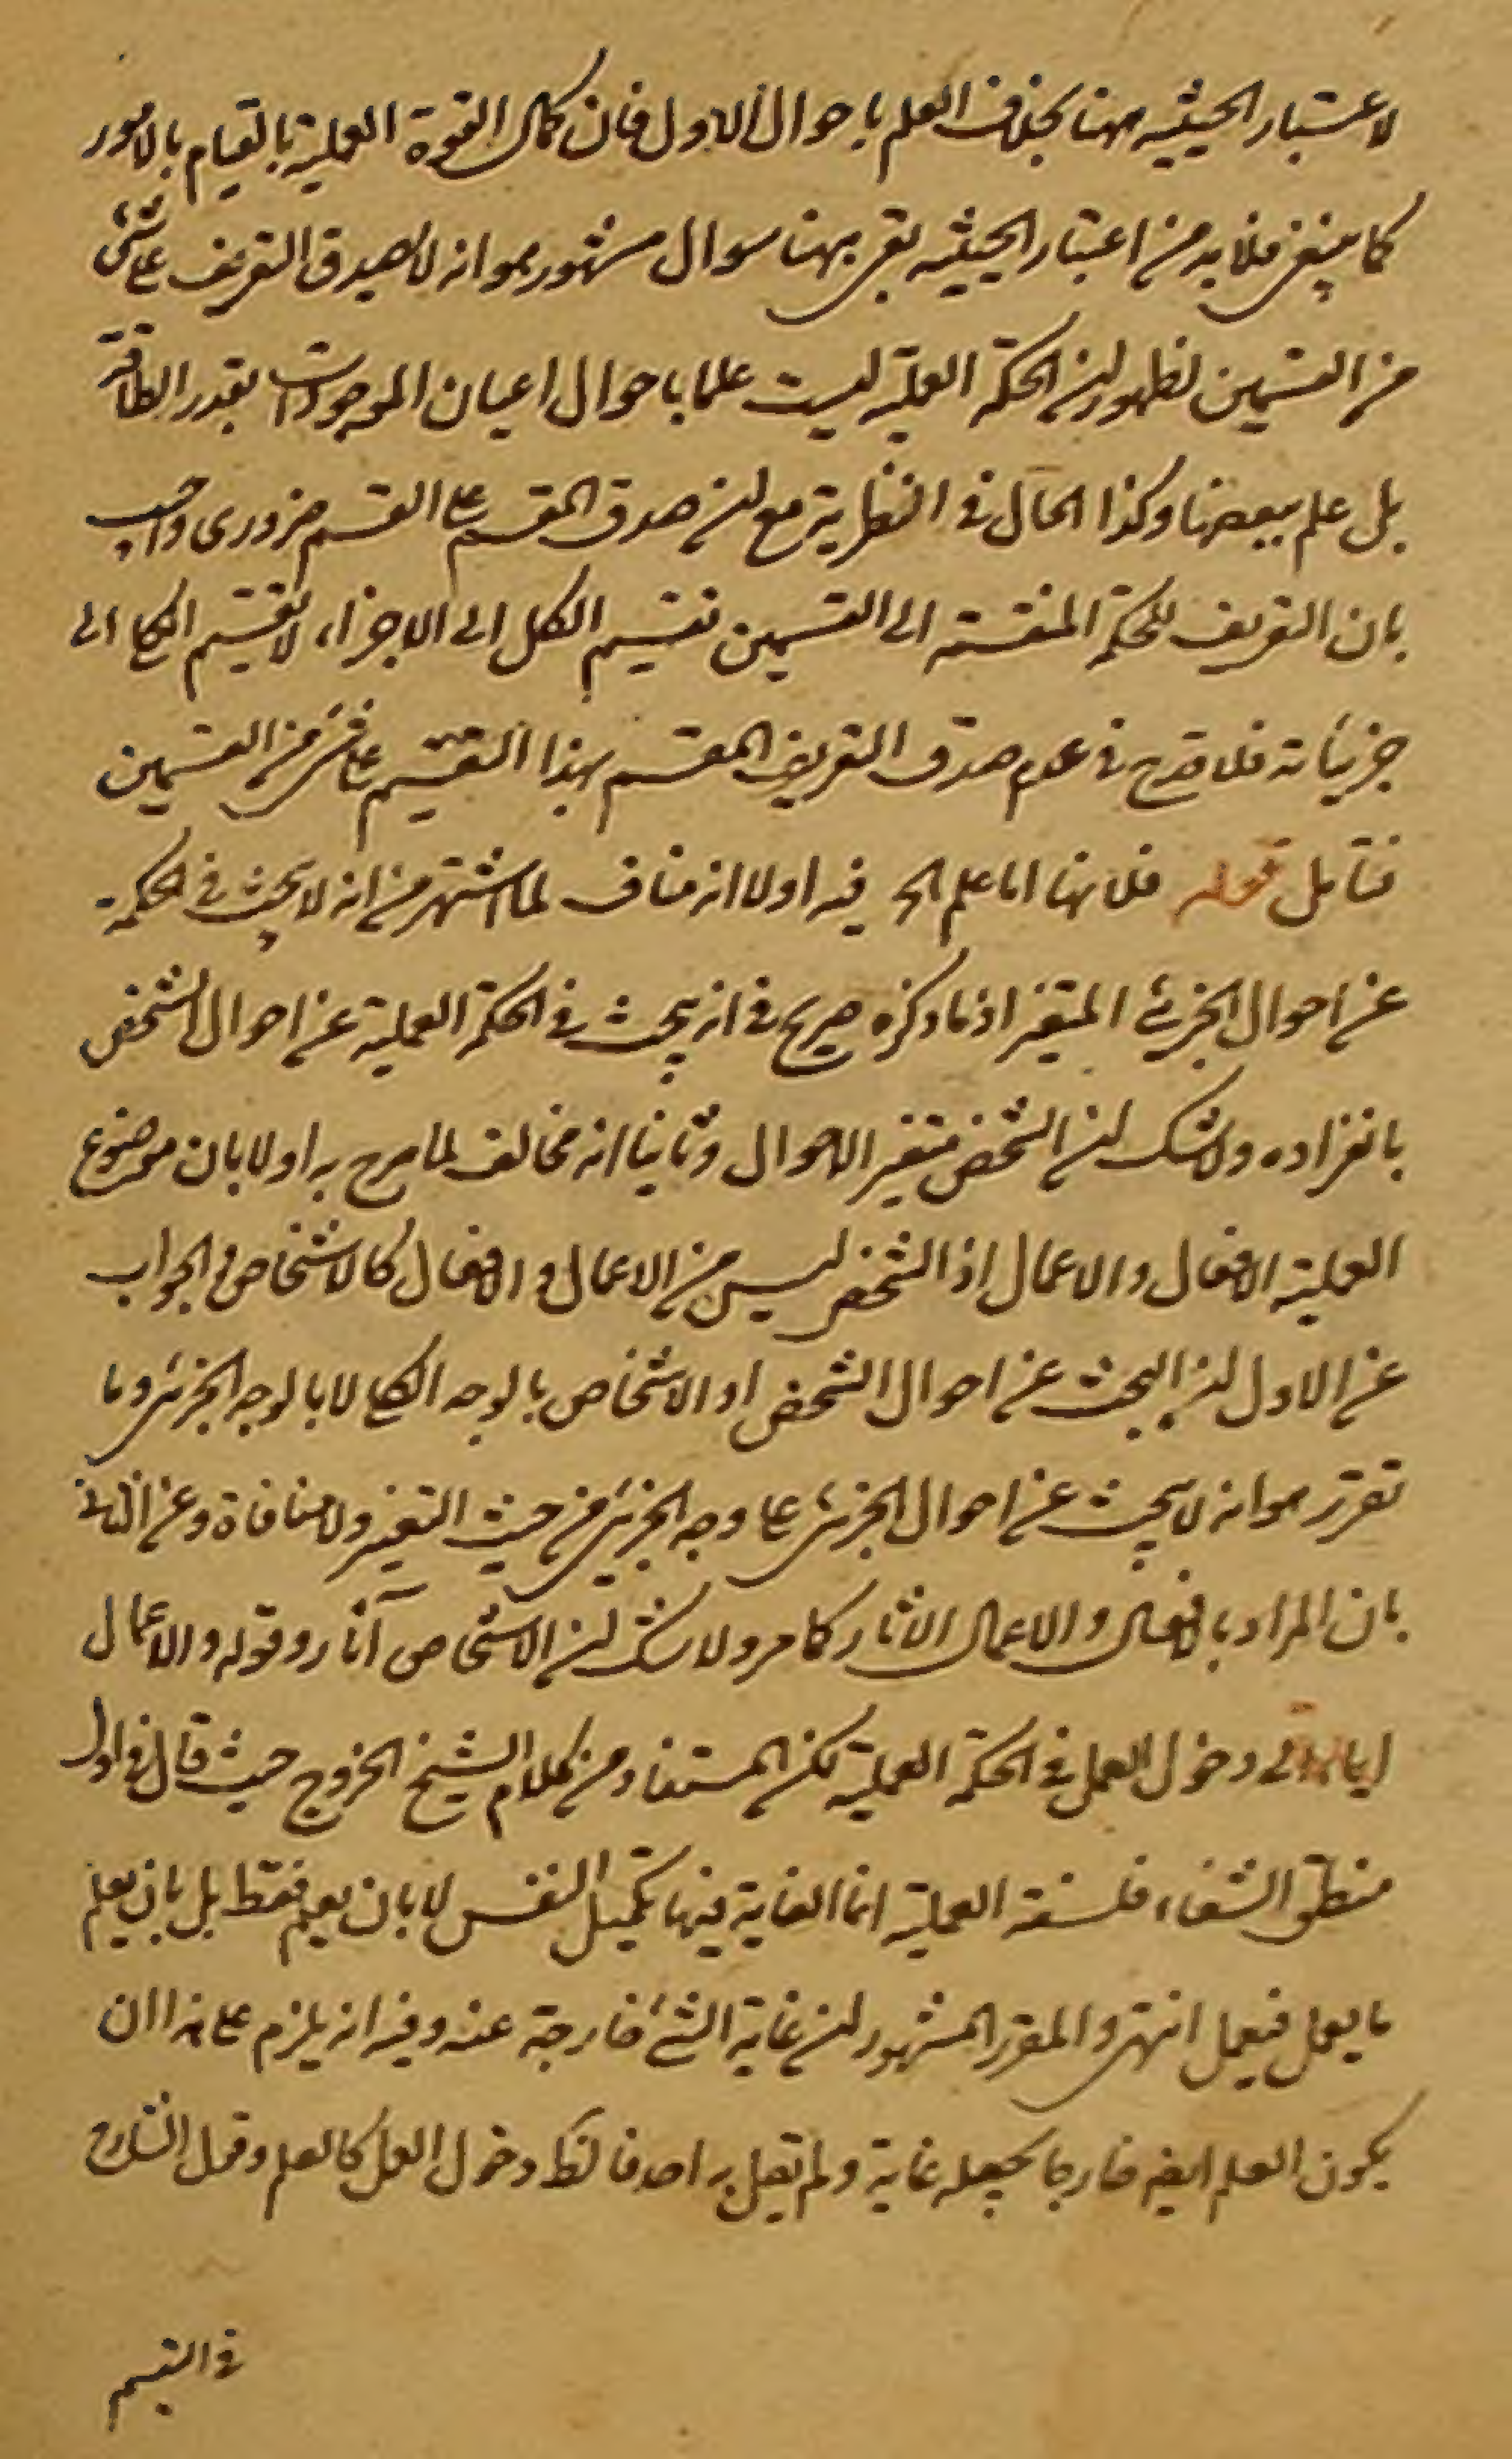 لاعتبار الحيثيه ههنا بخلاف العلم باحوال الاول فان كمال القوة العملية بالقيام بالامور
كما ينبغى فلا بد من اعتبار الحيثيه بقى ههنا سوال مشهور هو انه لا يصدق التعريف على شئ
من القسمين لظهور ان الحكمة العملية ليست علما باحوال اعيان الموجودات بقدر الطاقة
بل علم ببعضها وكذا الحال فى النظرية مع ان صدق المقسم على القسم ضرورى واجيب
بان التعريف للحكمة المنقسمة الى القسمين تقسيم الكل الى الاجزاء لا تقسيم الكلى الى
جزئياته فلا قدح فى عدم صدق التعريف المقسم بهذا التقسيم على شئ من القسمين
فتأمل قوله فلانها اما علم الخ فيه اولا انه مناف لما اشتهر من انه لا يبحث فى الحكمة
عن احوال الجزئى المتغير اذ ما ذكره صريح فى انه يبحث فى الحكمة العملية عن احوال الشخص
بانفراده ولا شك ان الشخص متغير الاحوال وثانيا انه مخالف لما صرح به اولا بان موضوع
العملية الافعال والاعمال اذ الشخص ليس من الاعمال والافعال كالاشخاص والجواب
عن الاول ان البحث عن احوال الشخص او الاشخاص بالوجه الكلى لا بالوجه الجزئى وما
تقرر هو انه لا يبحث عن احوال الجزئى على وجه الجزئى من حيث التغير ولا منافاة وعن الثانى
بان المراد بالافعال والاعمال الاثار كما مر ولا شك ان الاشخاص آثار وقوله والاعمال
ايماء الى دخول العمل فى الحكمة العملية لكن المستفاد من كلام الشيخ الخروج حيث قال فى اول
منطق الشفاء فلسفة العملية انما الغاية فيها تكميل النفس لا بان يعلم فقط بل بان يعلم
ما يعمل فيعمل انتهى والمقرر المشهور ان غاية الشئ خارجة عنه وفيه انه يلزم على هذا ان
يكون العلم ايضا خارجا بجعله غاية ولم يقل به احد فالكط دخول العمل كالعلم وقول الشارح
فى التقسيم